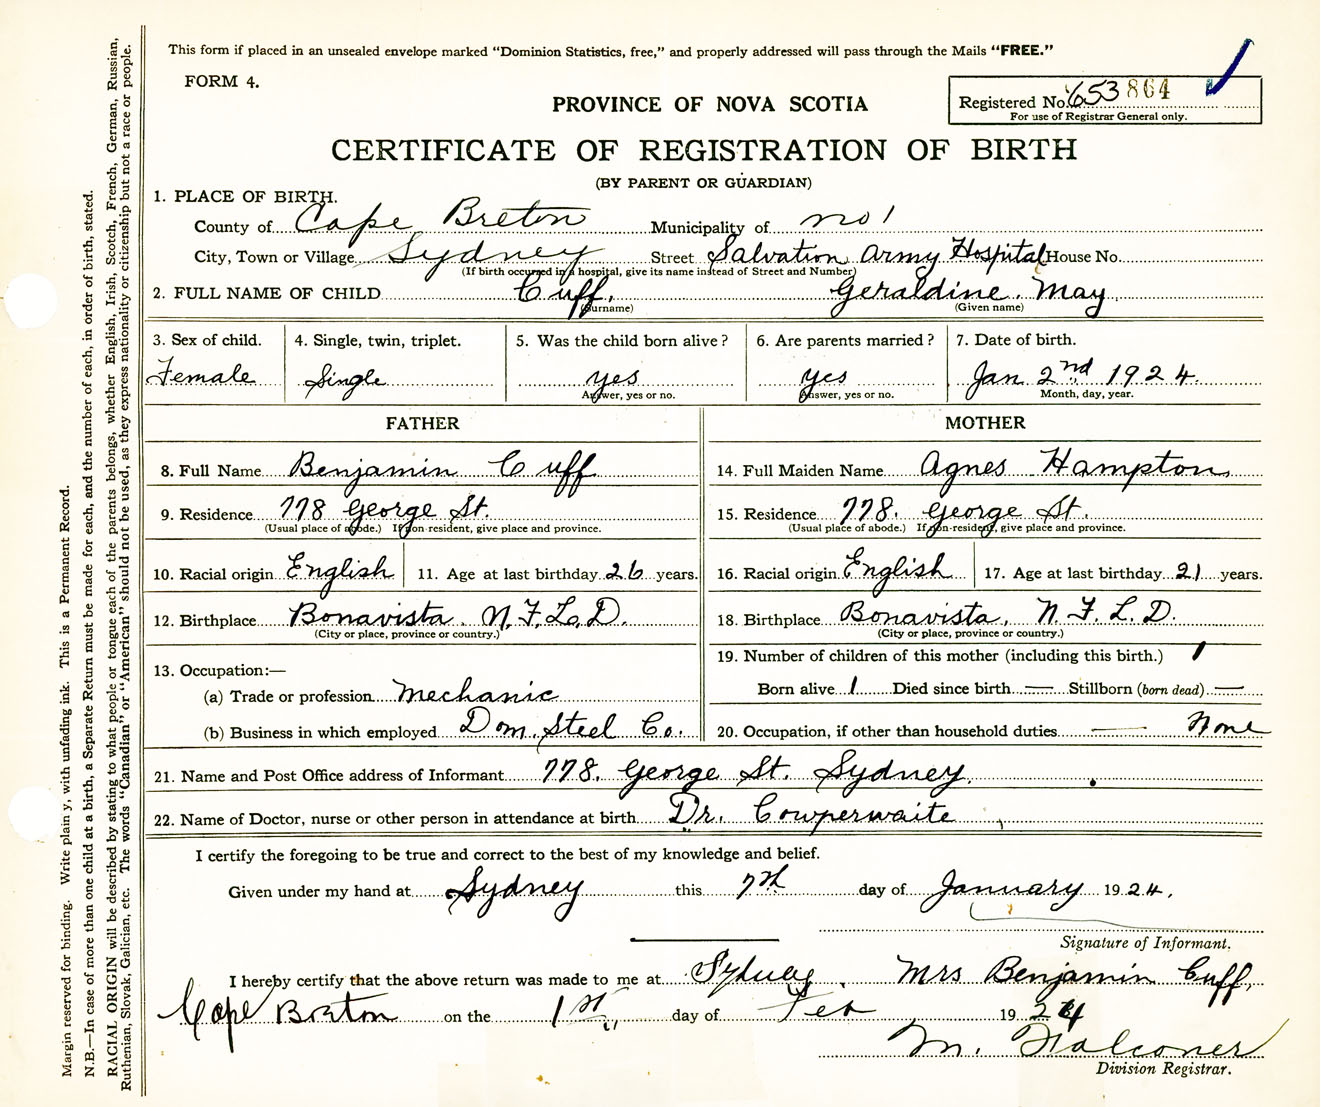 This form if placed in an unsealed envelope marked "Dominion Statistics, free," and properly addressed will pass through the Mails "FREE."
FORM 4.
PROVINCE OF NOVA SCOTIA
Registered No. 653 864
For use of Registrar General only.
CERTIFICATE OF REGISTRATION OF BIRTH
(BY PARENT OR GUARDIAN)
1. PLACE OF BIRTH.
County of Cape Breton Municipality of no 1
City, Town or Village Sydney Street Salvation Army Hospital House No.
(If birth occurred in a hospital, give its name instead of Street and Number)
2. FULL NAME OF CHILD Cuff, Geraldine May
(Surname) (Given name)
3. Sex of child. 4. Single, twin, triplet. 5. Was the child born alive? 6. Are parents married? 7. Date of birth.
Female Single yes yes Jan 2nd 1924.
Answer, yes or no. Answer, yes or no. Month, day, year.
FATHER MOTHER
8. Full Name Benjamin Cuff 14. Full Maiden Name Agnes Hampton
9. Residence 778 George St. 15. Residence 778. George St.
(Usual place of abode.) If non-resident, give place and province. (Usual place of abode.) If non-resident, give place and province.
10. Racial origin English 11. Age at last birthday 26 years. 16. Racial origin English 17. Age at last birthday 21 years.
12. Birthplace Bonavista. N.F.L.D. 18. Birthplace Bonavista, N.F.L.D.
(City or place, province or country.) (City or place, province or country.)
13. Occupation:— 19. Number of children of this mother (including this birth.) 1
(a) Trade or profession Mechanic Born alive 1 Died since birth — Stillborn (born dead) —
(b) Business in which employed Dom. Steel Co. 20. Occupation, if other than household duties — None
21. Name and Post Office address of Informant 778. George St. Sydney.
22. Name of Doctor, nurse or other person in attendance at birth Dr. Cowperwaite
I certify the foregoing to be true and correct to the best of my knowledge and belief.
Given under my hand at Sydney this 7th day of January 1924.
Signature of Informant.
I hereby certify that the above return was made to me at Sydney Mrs Benjamin Cuff.
Cape Breton on the 1st day of Feb 1924
M. Falconer
Division Registrar.
Margin reserved for binding. Write plainly, with unfading ink. This is a Permanent Record.
N.B.—In case of more than one child at a birth, a Separate Return must be made for each, and the number of each, in order of birth, stated.
RACIAL ORIGIN will be described by stating to what people or tongue each of the parents belongs, whether English, Irish, Scotch, French, German, Russian,
Ruthenian, Slovak, Galician, etc. The words "Canadian" or "American" should not be used, as they express nationality or citizenship but not a race or people.